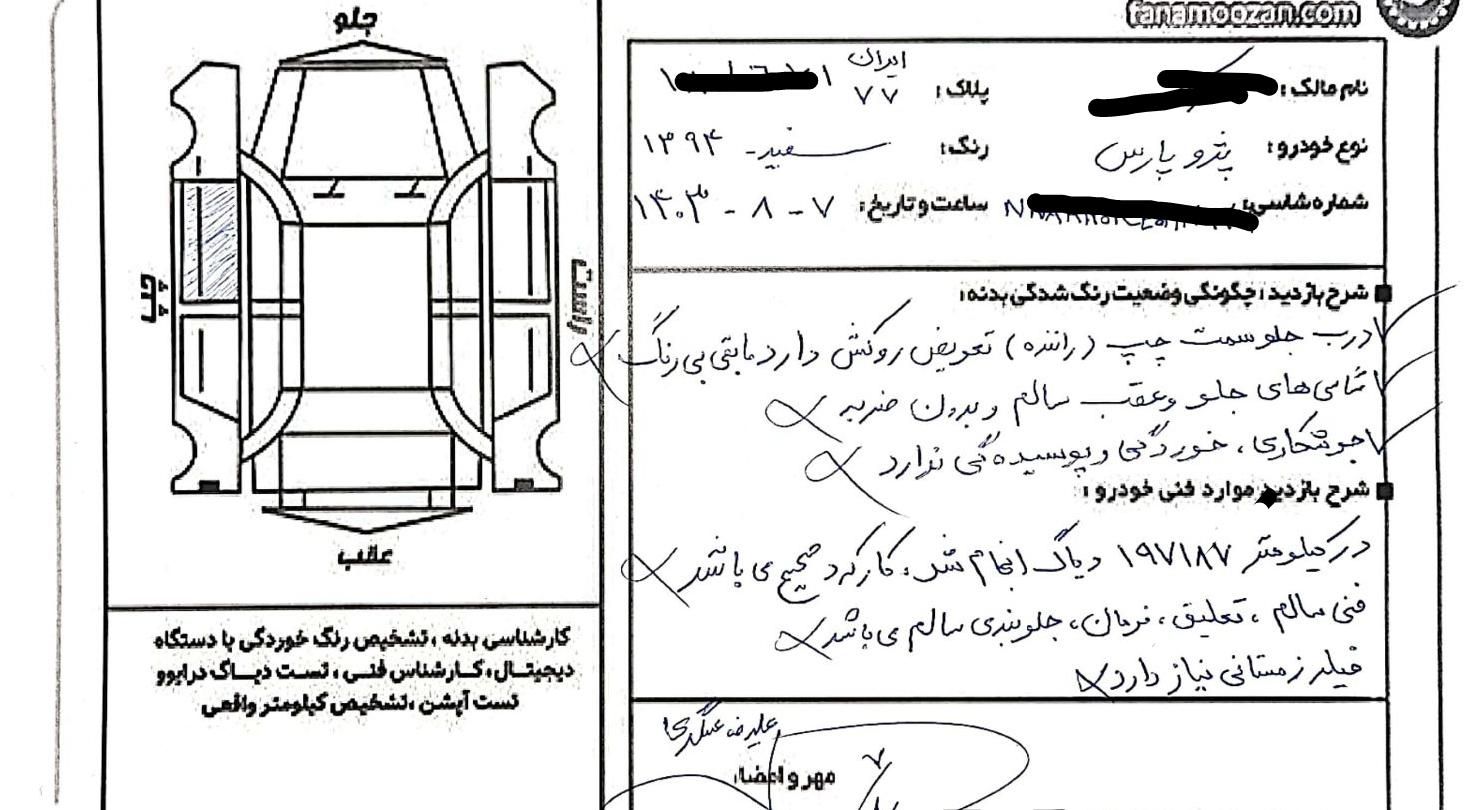 fanamoozan.com
نام مالک:
پلاک: ایران ۷۷
نوع خودرو: پژو پارس
رنگ: سفید - ۱۳۹۴
شماره شاسی:
ساعت و تاریخ: ۷ - ۸ - ۱۴۰۳
شرح بازدید: چگونگی وضعیت رنگ شدگی بدنه:
درب جلو سمت چپ (راننده) تعویض روکش دارد مابقی بی رنگ
شاسی های جلو وعقب سالم و بدون ضربه
جوشکاری، خوردگی و پوسیده گی ندارد
شرح بازدید موارد فنی خودرو:
در کیلومتر ۱۹۷۱۸۷ دیاگ انجام شد، کارکرد صحیح می باشد
فنی سالم، تعلیق، فرمان، جلوبندی سالم می باشد
فیلر زمستانی نیاز دارد
مهر و امضا:
جلو
چپ
راست
عقب
کارشناسی بدنه، تشخیص رنگ خوردگی با دستگاه
دیجیتال، کارشناس فنی، تست دیاگ درایوو
تست آپشن، تشخیص کیلومتر واقعی